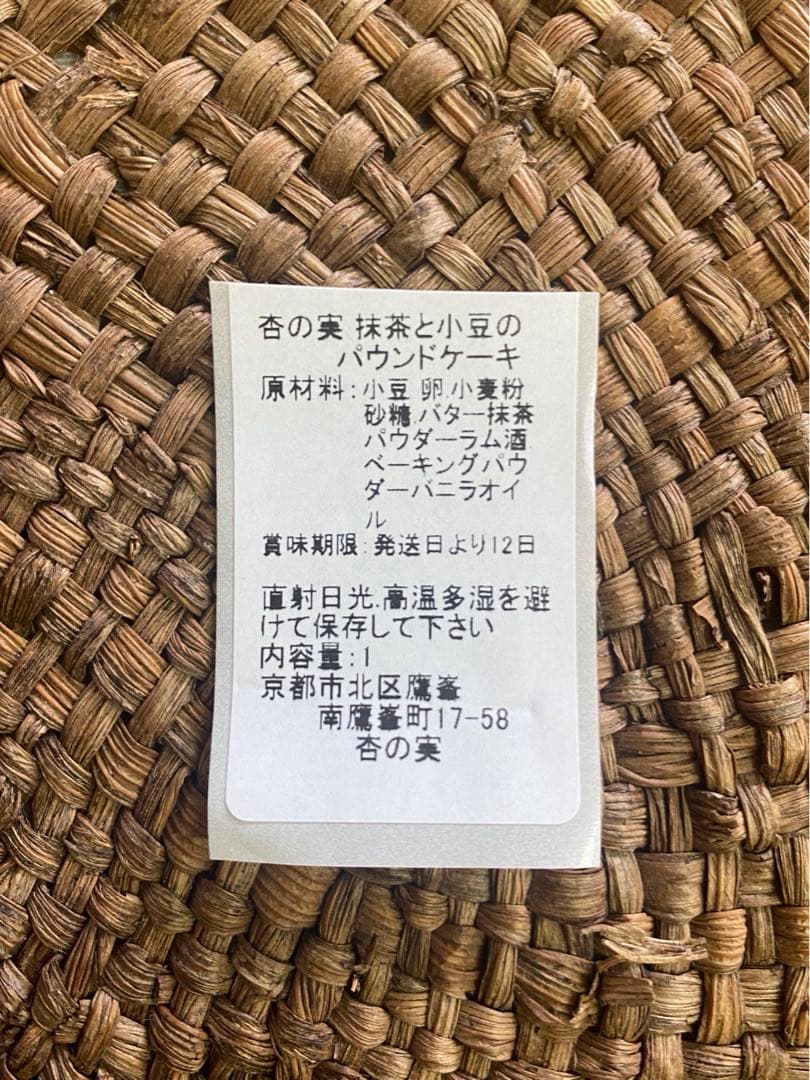 杏の実 抹茶と小豆の
パウンドケーキ
原材料:小豆 卵.小麦粉
砂糖.バター抹茶
パウダーラム酒
ベーキングパウ
ダーバニラオイ
ル
賞味期限:発送日より12日
直射日光.高温多湿を避
けて保存して下さい
内容量:1
京都市北区鷹峯
南鷹峯町17-58
杏の実